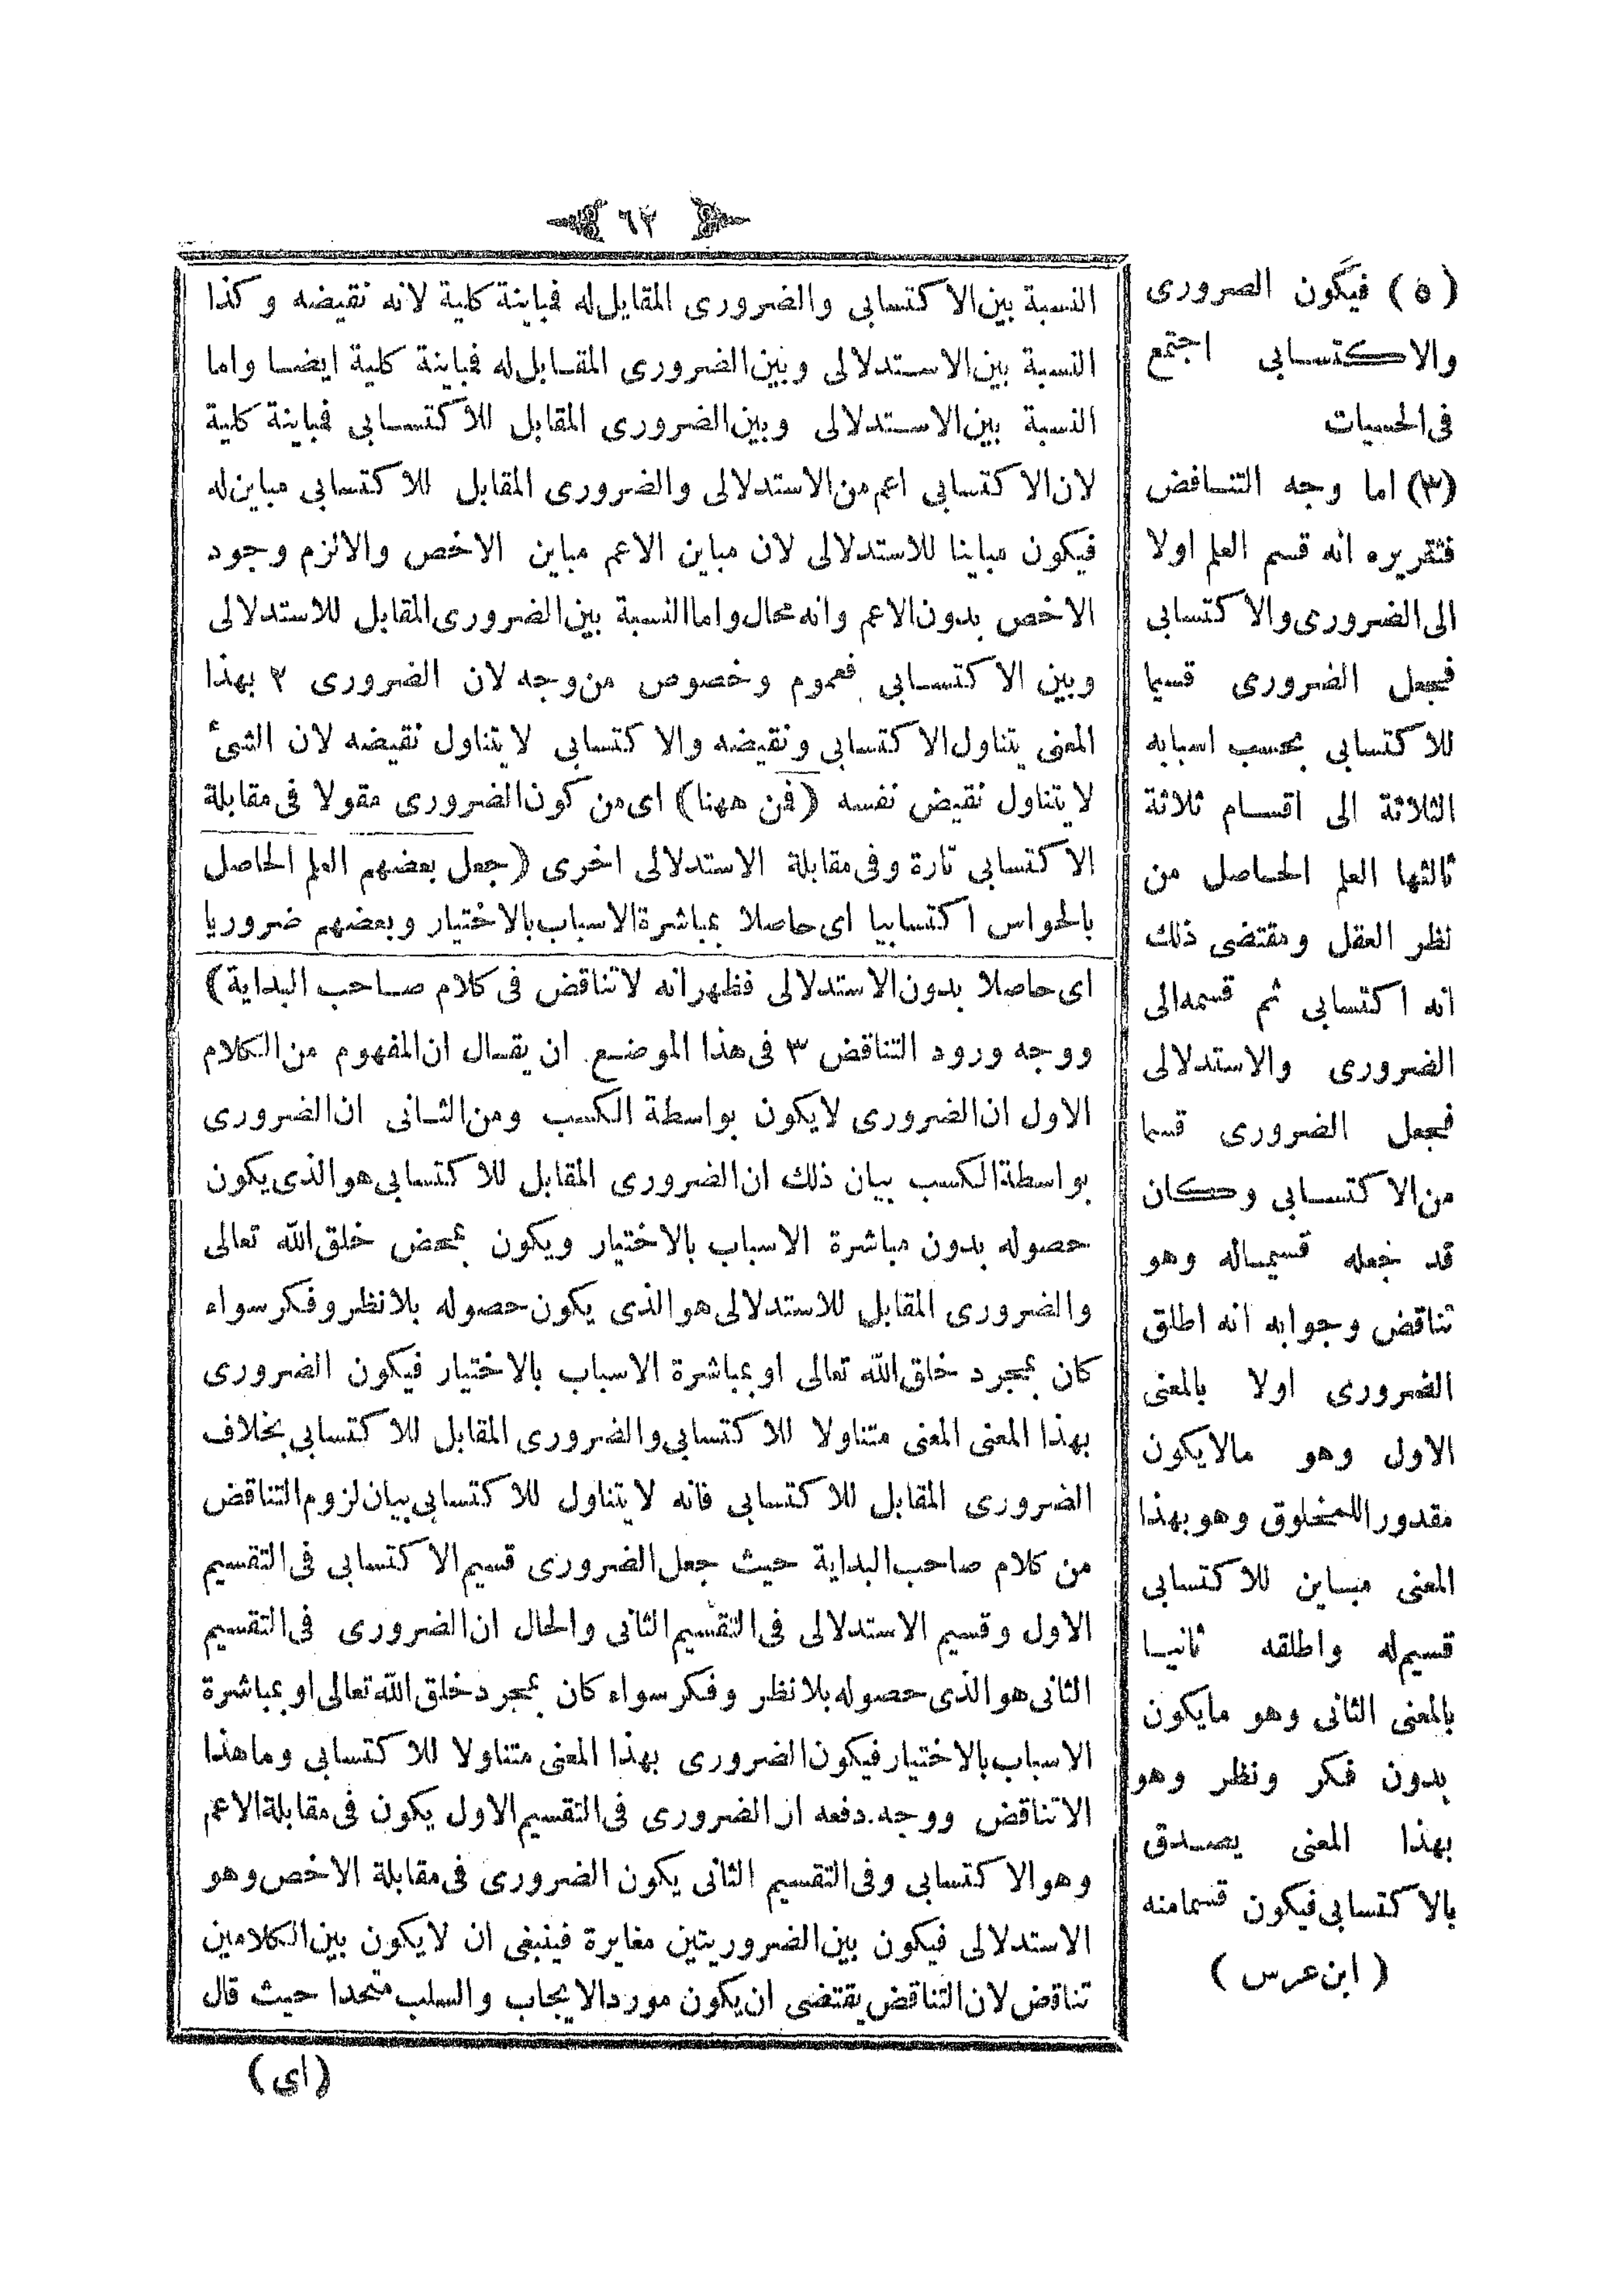 ٦٢
النسبة بين الاكتسابى والضرورى المقابل له فمباينة كلية لانه نقيضه وكذا
النسبة بين الاستدلالى وبين الضرورى المقابل له فمباينة كلية ايضا واما
النسبة بين الاستدلالى وبين الضرورى المقابل للاكتسابى فمباينة كلية
لان الاكتسابى اعم من الاستدلالى والضرورى المقابل للاكتسابى مباين له
فيكون مباينا للاستدلالى لان مباين الاعم مباين الاخص والالزم وجود
الاخص بدون الاعم وانه محال واما النسبة بين الضرورى المقابل للاستدلالى
وبين الاكتسابى فعموم وخصوص من وجه لان الضرورى ٢ بهذا
المعنى يتناول الاكتسابى ونقيضه والاكتسابى لا يتناول نقيضه لان الشئ
لا يتناول نقيض نفسه (فمن ههنا) اى من كون الضرورى مقولا فى مقابلة
الاكتسابى تارة وفى مقابلة الاستدلالى اخرى (جعل بعضهم العلم الحاصل
بالحواس اكتسابيا اى حاصلا بمباشرة الاسباب بالاختيار وبعضهم ضروريا
اى حاصلا بدون الاستدلالى فظهر انه لا تناقض فى كلام صاحب البداية)
ووجه ورود التناقض ٣ فى هذا الموضع ان يقال ان المفهوم من الكلام
الاول ان الضرورى لا يكون بواسطة الكسب ومن الثانى ان الضرورى
بواسطة الكسب بيان ذلك ان الضرورى المقابل للاكتسابى هو الذى يكون
حصوله بدون مباشرة الاسباب بالاختيار ويكون بمحض خلق الله تعالى
والضرورى المقابل للاستدلالى هو الذى يكون حصوله بلا نظر وفكر سواء
كان بمجرد خلق الله تعالى او بمباشرة الاسباب بالاختيار فيكون الضرورى
بهذا المعنى المعنى متناولا للاكتسابى والضرورى المقابل للاكتسابى بخلاف
الضرورى المقابل للاكتسابى فانه لا يتناول للاكتسابى بيان لزوم التناقض
من كلام صاحب البداية حيث جعل الضرورى قسيم الاكتسابى فى التقسيم
الاول وقسيم الاستدلالى فى التقسيم الثانى والحال ان الضرورى فى التقسيم
الثانى هو الذى حصوله بلا نظر وفكر سواء كان بمجرد خلق الله تعالى او بمباشرة
الاسباب بالاختيار فيكون الضرورى بهذا المعنى متناولا للاكتسابى وما هذا
الاتناقض ووجه دفعه ان الضرورى فى التقسيم الاول يكون فى مقابلة الاعم
وهو الاكتسابى وفى التقسيم الثانى يكون الضرورى فى مقابلة الاخص وهو
الاستدلالى فيكون بين الضروريتين مغايرة فينبغى ان لا يكون بين الكلامين
تناقض لان التناقض يقتضى ان يكون مورد الايجاب والسلب متحدا حيث قال
(اى)
(٥) فيكون الضرورى
والاكتسابى اجتمع
فى الحسيات
(٣) اما وجه التناقض
فتقريره انه قسم العلم اولا
الى الضرورى والاكتسابى
فجعل الضرورى قسيما
للاكتسابى بحسب اسبابه
الثلاثة الى اقسام ثلاثة
ثالثها العلم الحاصل من
نظر العقل ومقتضى ذلك
انه اكتسابى ثم قسمه الى
الضرورى والاستدلالى
فجعل الضرورى قسما
من الاكتسابى وكان
قد جعله قسيماله وهو
تناقض وجوابه انه اطلق
الضرورى اولا بالمعنى
الاول وهو مالايكون
مقدورا للمخلوق وهو بهذا
المعنى مباين للاكتسابى
قسيم له واطلقه ثانيا
بالمعنى الثانى وهو مايكون
بدون فكر ونظر وهو
بهذا المعنى يصدق
بالاكتسابى فيكون قسمامنه
(ابن عرس)